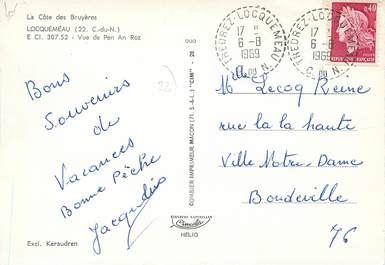 La Côte des Bruyères
LOCQUEMEAU (22. C.-du-N.)
E Cl. 307.52 - Vue de Pen An Roz
Bons
Souvenirs
de
Vacances
Bonne Pêche
Jacqueline
Excl. Keraudren
22
COMBIER IMPRIMEUR MACON (71. S.-&-L.) "CIM" - 28
HELIO
TREDREZ-LOCQUEMEAU
17 -
6 - 8
1969
C. DU N.
TREDREZ-LOCQUEMEAU
17 -
6 - 8
1969
C. DU N.
0,40
Mlle Lecoq Reine
rue la la haute
Ville Notre-Dame
Bondeville
76